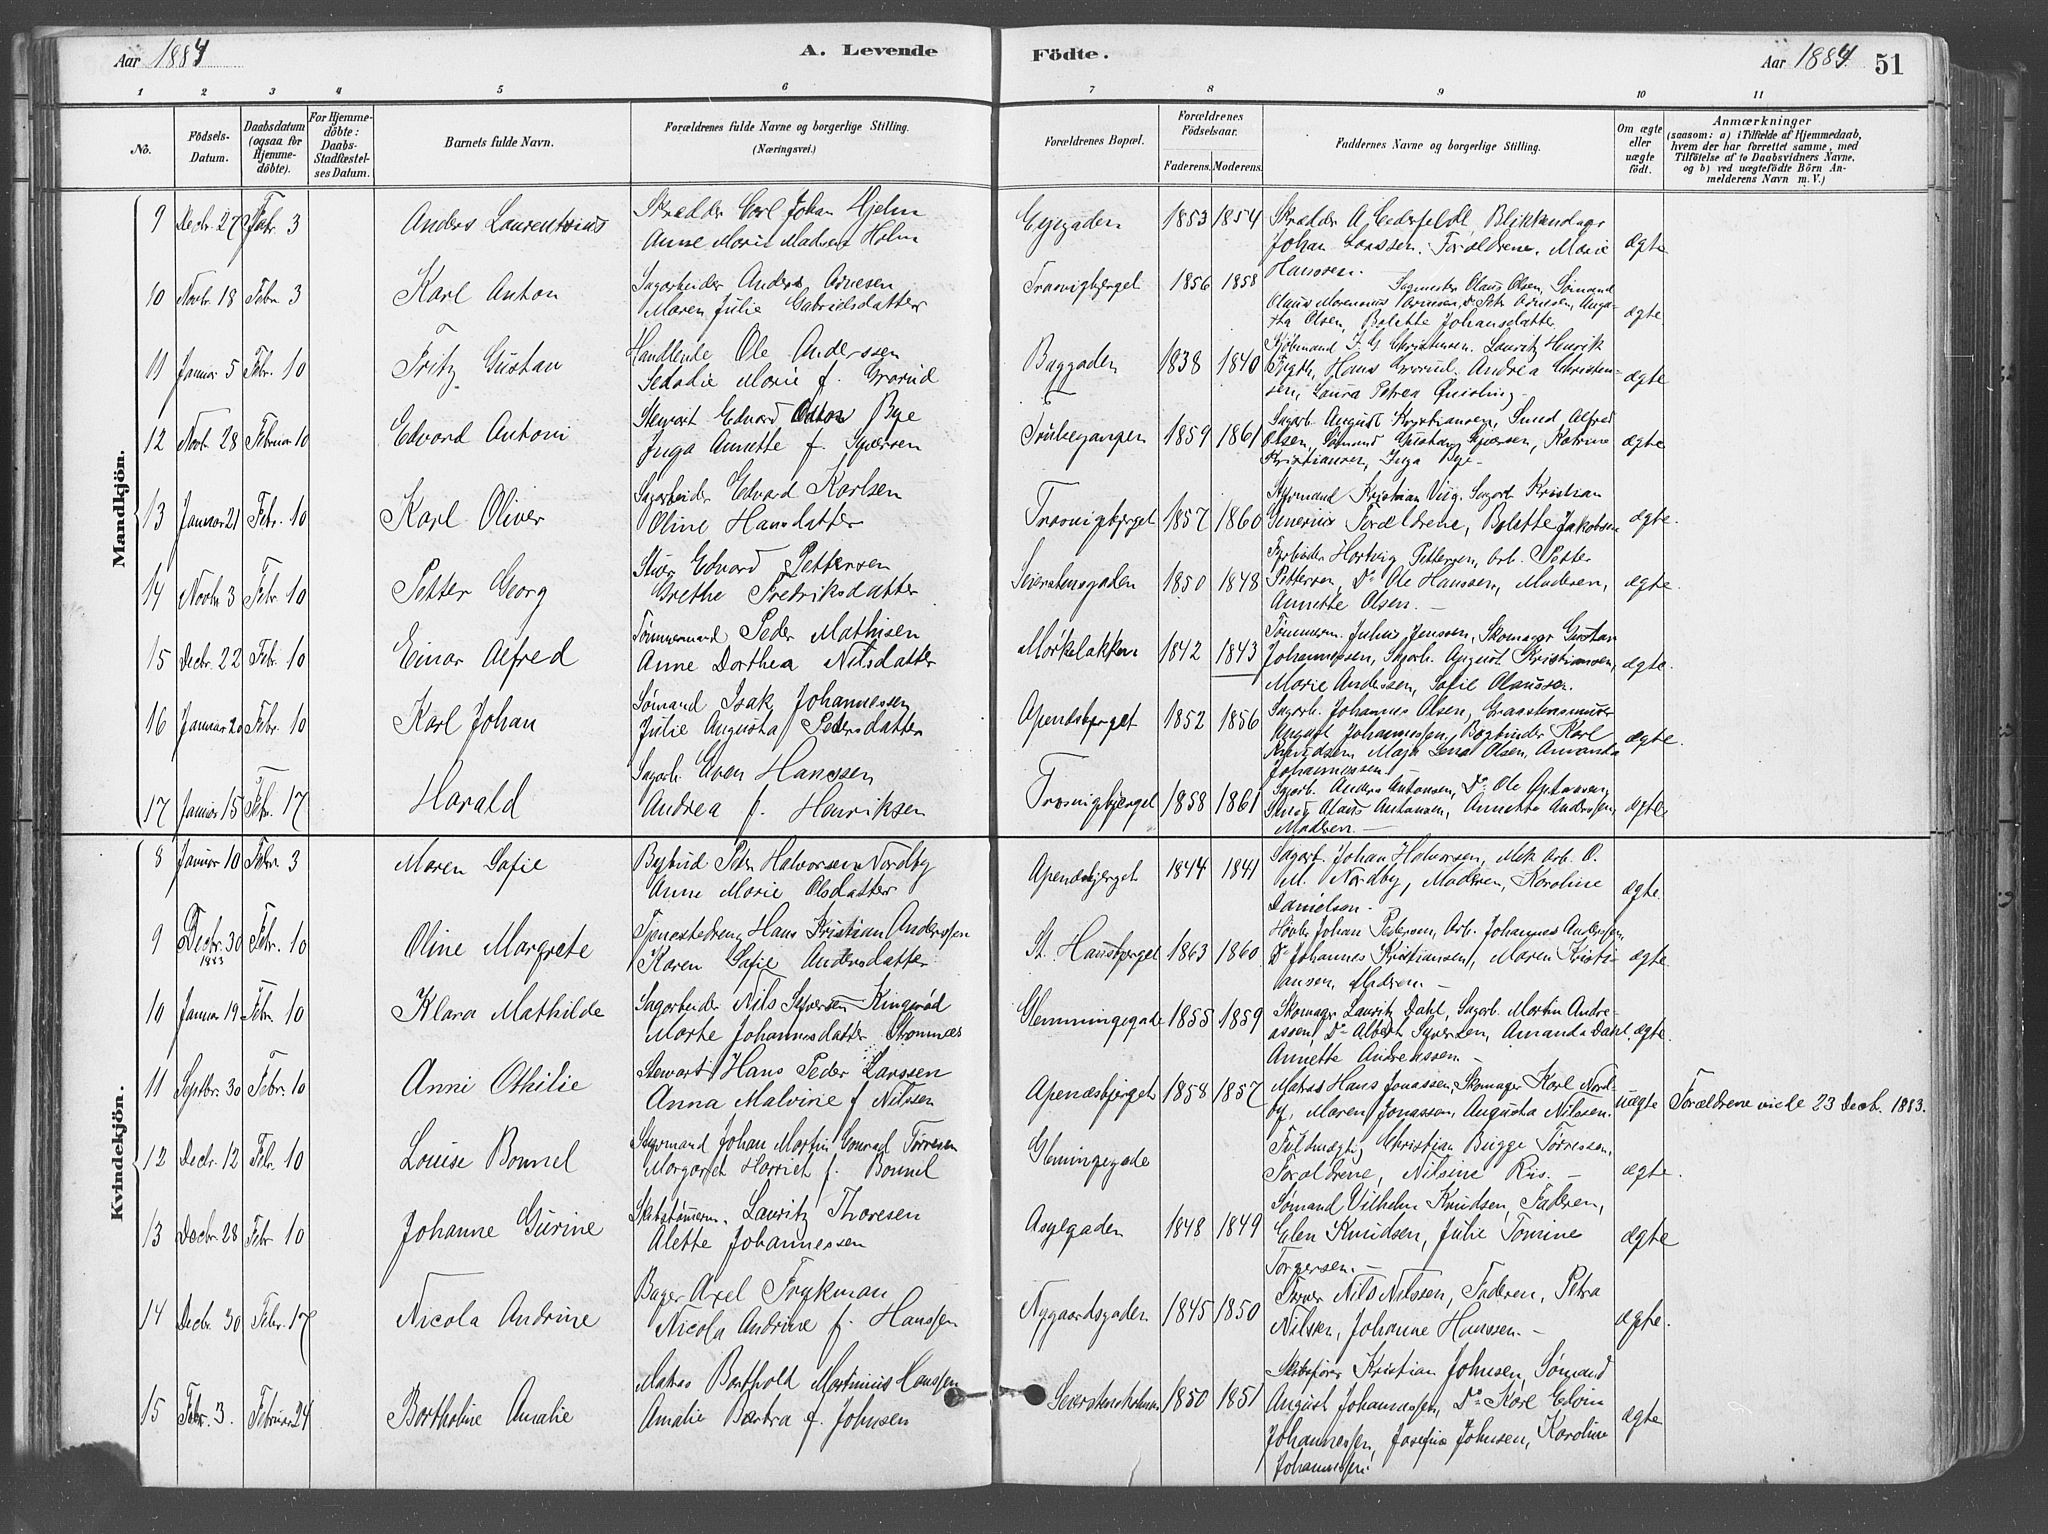 Aar 1884 A. Levende Födte. Aar 1884 51
1 2 3 4 5 6 7 8 9 10 11
No.
Födsels-Datum.
Daabsdatum (ogsaa for Hjemmedöbte).
For Hjemmedöbte: Daabs-Stadfæstelses Datum.
Barnets fulde Navn.
Forældrenes fulde Navne og borgerlige Stilling.
(Næringsvei.)
Forældrenes Bopæl.
Forældrenes Födselsaar.
Faderens. Moderens.
Faddernes Navne og borgerlige Stilling.
Om ægte eller uægte födt.
Anmærkninger
(saasom: a) i Tilfælde af Hjemmedaab, hvem der har forrettet samme, med Tilföielse af to Daabsvidners Navne, og b) ved uægtefödte Börn Anmelderens Navn m. V.)
Mandkjön.
9 Decbr. 27 Febr. 3 Anders Laurentius
Skrædder Carl Johan Hjelm
Anne Marie Madsen Holm
Enggaden 1853 1854
Skrædder A. Cederfeldt, Blikkenslager
Johan Larssen, Forældrene, Marie
Hanssen.
ægte
10 Novbr. 18 Febr. 3 Karl Anton
Sagarbeider Anders Arnesen
Maren Julie Gabrielsdatter
Trosvigbjerget 1856 1858
Sagmester Olaus Olsen, Sømand
Olaus Arnesen, Do Petr. Arnesen, Augu-
sta Olsen, Bolette Johansdatter
ægte
11 Januar 5 Febr. 10 Fritz Gustav
Handlende Ole Anderssen
Sedolie Marie f. Grorud
Baggaden 1838 1840
Kjøbmand Christensen, Lauritz Henrik
Hans Grorud, Andrea Christen-
sen, Laura Petrea Quisling
ægte
12 Novbr. 28 Februar 10 Edvard Antoni
Stewart Edvard Anton Bye
Inga Annette f. Syversen
1859 1861
Sagarb. August Kristiansen, Smed Alfred
Olsen, Sømand Gustav Syversen, Katrine
Kristiansen, Inga Bye
ægte
13 Januar 21 Febr. 10 Karl Oliver
Sagarbeider Edvard Karlsen
Oline Hansdatter
Trosvigbjerget 1857 1860
Styrmand Kristian Viig, Sagarb. Kristian
Generius, Forældrene, Bolette Jakobsen
ægte
14 Novbr. 3 Febr. 10 Petter Georg
Stuer Edvard Pettersen
Grethe Fredriksdatter
Seierstensgaden 1850 1848
Fyrbøder Hartvig Pettersen, Arb. Petter
Pettersen, Do Ole Hanssen, Moderen,
Annette Olsen.
ægte
15 Decbr. 22 Febr. 10 Einar Alfred
Tømmermand Peder Mathisen
Anne Dorthea Nilsdatter
Mørkeløkken 1842 1843
Tømmerm. Julius Jenssen, Skomager Gustav
Johannessen, Sagarb. August Kristiansen,
Marie Anderssen, Sofie Olaussen.
ægte
16 Januar 20 Febr. 10 Karl Johan
Sømand Isak Johannessen
Julie Augusta Pedersdatter
Apenæsbjerget 1852 1856
Sagarb. Johannes Olsen, Graastensmurer
August Johannessen, Bogbinder Karl
Knudsen, Maja Lena Olsen, Amanda
Johannessen
ægte
17 Januar 15 Febr. 17 Harald
Sagarb. Even Hanssen
Andrea f. Henriksen
Trosvigbjerget 1858 1861
Sagarb. Anders Antonsen, Do Ole Antonsen,
Smed Olaus Antonsen, Annette Anderssen,
Moderen.
ægte
Kvindekjön.
8 Januar 10 Febr. 3 Maren Sofie
Bybud Peder Halvorsen Nordby
Anne Marie Olsdatter
Apenæsbjerget 1844 1841
Sagarb. Johan Halvorsen, Mek. Arb. O.
M. Nordby, Moderen, Karoline
Danielson.
ægte
9 Decbr. 30 1883 Febr. 10 Oline Margrete
Tjenestedreng Hans Kristian Anderssen
Karen Sofie Andersdatter
St. Hansbjerget 1863 1860
Høvler Johan Pedersen, Arb. Johannes Anderssen,
Do Johannes Kristiansen, Maren Kristi-
ansen, Moderen
ægte
10 Januar 19 Febr. 10 Klara Mathilde
Sagarbeider Nils Syversen Kingsrød
Marthe Johannesdatter Strømnes
Glemmingegade 1855 1859
Skomager Lauritz Dahl, Sagarb. Martin Andre-
assen, Do Albert Syversen, Amanda Dahl,
Annette Andreassen
ægte
11 Septbr. 30 Febr. 10 Anni Othilie
Stewart Hans Peder Larssen
Anna Malvine f. Nilssen
Apenæsbjerget 1858 1857
Matros Hans Jonassen, Skomager Karl Nord-
by, Maren Jonassen, Augusta Nilssen
uægte Forældrene viede 23 Decb. 1883.
12 Decbr. 12 Febr. 10 Louise Bonnel
Styrmand Johan Martin Conrad Torresen
Margaret Harriet f. Bonnel
Glemmingegade
Fuldmægtig Christian Bugge Torressen,
Forældrene, Nilsine Riis.
ægte
13 Decbr. 28 Febr. 10 Johanne Gurine
Skibstømmerm. Lauritz Thoresen
Alette Johannessen
Asylgaden 1848 1849
Sømand Vilhelm Knudsen, Faderen,
Elen Knudsen, Julie Tomine
Torgersen.
ægte
14 Decbr. 30 Febr. 17 Nicola Andrine
Bager Axel Frykman
Nicola Andrine f. Hanssen
Nygaardsgaden 1845 1850
Nils Nilssen, Faderen, Petra
Nilssen, Johanne Hanssen.
ægte
15 Febr. 3. Februar 24 Bartholine Amalie
Matros Barthold Martinius Hanssen
Amalie Bertra f. Johnsen
Seierstensholmen 1850 1851
Skibsfører Kristian Johnsen, Sømand
August Johannessen, Do Karl Edvin
Johannessen, Josefine Johnsen, Karoline
Johannessen
ægte